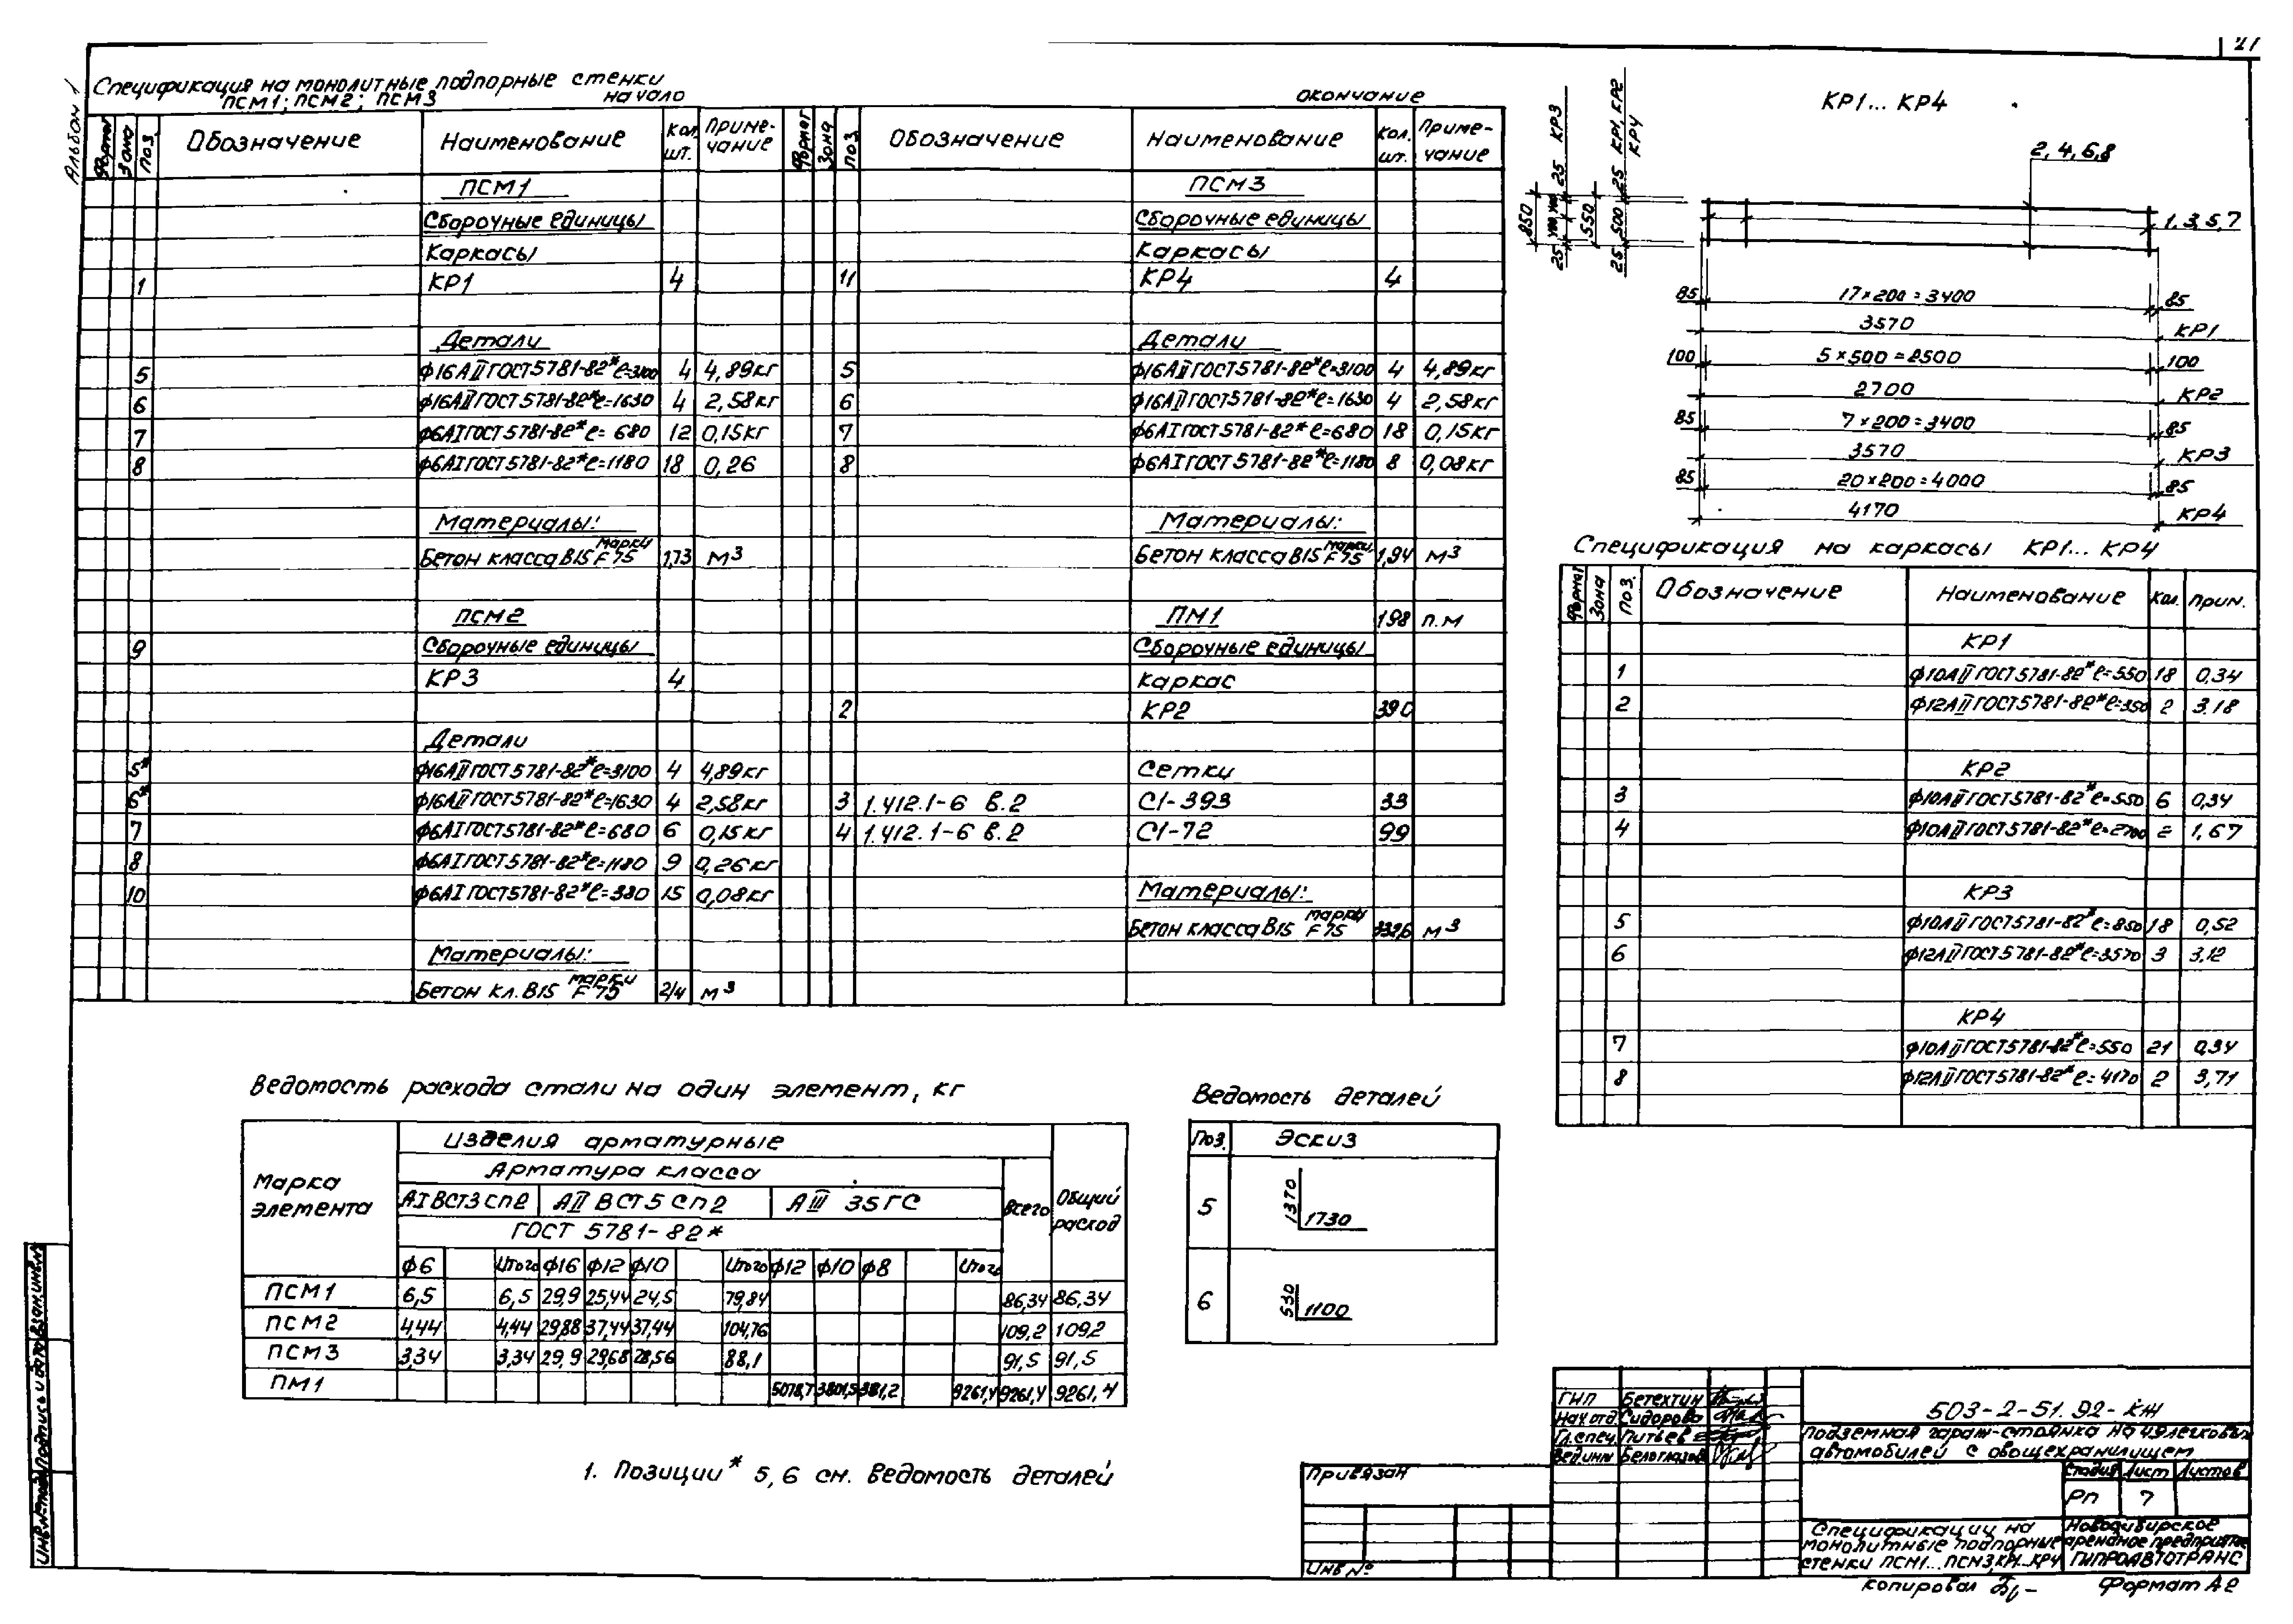 21
Альбом 1
Спецификация на монолитные подпорные стенки
ПСМ1; ПСМ2; ПСМ3
начало
окончание
Формат Зона Поз. Обозначение Наименование Кол. шт. Примечание
ПСМ1
Сборочные единицы
Каркасы
1 КР1 4
Детали
5 ф16АII ГОСТ 5781-82* ℓ=3100 4 4,89кг
6 ф16АII ГОСТ 5781-82* ℓ=1630 4 2,58кг
7 ф6АI ГОСТ 5781-82* ℓ= 680 12 0,15кг
8 ф6АI ГОСТ 5781-82* ℓ=1180 18 0,26
Материалы:
Бетон класса В15 марки F75 1,73 м3
ПСМ2
9 Сборочные единицы
КР3 4
Детали
5* ф16АII ГОСТ 5781-82* ℓ=3100 4 4,89кг
6* ф16АII ГОСТ 5781-82* ℓ=1630 4 2,58кг
7 ф6АI ГОСТ 5781-82* ℓ=680 6 0,15кг
8 ф6АI ГОСТ 5781-82* ℓ=1180 9 0,26кг
10 ф6АI ГОСТ 5781-82* ℓ=380 15 0,08кг
Материалы:
Бетон кл. В15 марки F75 2,14 м3
Формат Зона Поз. Обозначение Наименование Кол. шт. Примечание
ПСМ3
Сборочные единицы
Каркасы
11 КР4 4
Детали
5 ф16АII ГОСТ 5781-82* ℓ=3100 4 4,89кг
6 ф16АII ГОСТ 5781-82* ℓ=1630 4 2,58кг
7 ф6АI ГОСТ 5781-82* ℓ=680 18 0,15кг
8 ф6АI ГОСТ 5781-82* ℓ=1180 8 0,08кг
Материалы:
Бетон класса В15 марки F75 1,94 м3
ПМ1 198 п.м
Сборочные единицы
Каркас
2 КР2 390
Сетки
3 1.412.1-6 в.2 С1-393 33
4 1.412.1-6 в.2 С1-72 99
Материалы:
Бетон класса В15 марки F75 м3
КР1... КР4
25 КР3
25 КР1, КР2
КР4
850
400 400
25
550
500
25
2, 4, 6,8
1, 3, 5, 7
85 17×200=3400 85
3570 КР1
100 5×500=2500 100
2700 КР2
85 7×200=3400 85
3570 КР3
85 20×200=4000 85
4170 КР4
Спецификация на каркасы КР1... КР4
Формат Зона Поз. Обозначение Наименование Кол. Прим.
КР1
1 ф10АII ГОСТ 5781-82* ℓ=550 18 0,34
2 ф12АII ГОСТ 5781-82* ℓ=350 2 3.18
КР2
3 ф10АII ГОСТ 5781-82* ℓ=550 6 0,34
4 ф10АII ГОСТ 5781-82* ℓ=2700 2 1,67
КР3
5 ф10АII ГОСТ 5781-82* ℓ=850 18 0,52
6 ф12АII ГОСТ 5781-82* ℓ=3570 3 3,12
КР4
7 ф10АII ГОСТ 5781-82* ℓ=550 21 0,34
8 ф12АII ГОСТ 5781-82* ℓ= 4170 2 3,71
Ведомость расхода стали на один элемент, кг
Марка элемента Изделия арматурные Общий расход
Арматура класса Всего
АI ВСТ3 сп2 АII ВСТ5 Сп2 АIII 35ГС
ГОСТ 5781-82*
ф6 Итого ф16 ф12 ф10 Итого ф12 ф10 ф8 Итого
ПСМ1 6,5 6,5 29,9 25,44 24,5 79,84 86,34 86,34
ПСМ2 4,44 4,44 29,88 37,44 37,44 104,76 109,2 109,2
ПСМ3 3,34 3,34 29,9 29,68 28,56 88,1 91,5 91,5
ПМ1 5078,7 3801,5 381,2 9261,4 9261,4 9261,4
Ведомость деталей
Поз. Эскиз
5 1370 1730
6 530 1100
1. Позиции* 5,6 см. Ведомость деталей
Инв.№подл. Подпись и дата Взам.инв.№
Привязан
Инв №
ГИП Бетехтин
Нач.отд. Сидорова
Гл.спец. Питьев
Вед.инж Белоглазов
503-2-51.92-КЖ
Подземная гараж-стоянка на 49 легковых
автомобилей с овощехранилищем
Стадия Лист Листов
РП 7
Спецификации на
монолитные подпорные
стенки ПСМ1...ПСМ3,КР1..КР4
Новосибирское
арендное предприятие
ГИПРОАВТОТРАНС
Копировал
Формат А2